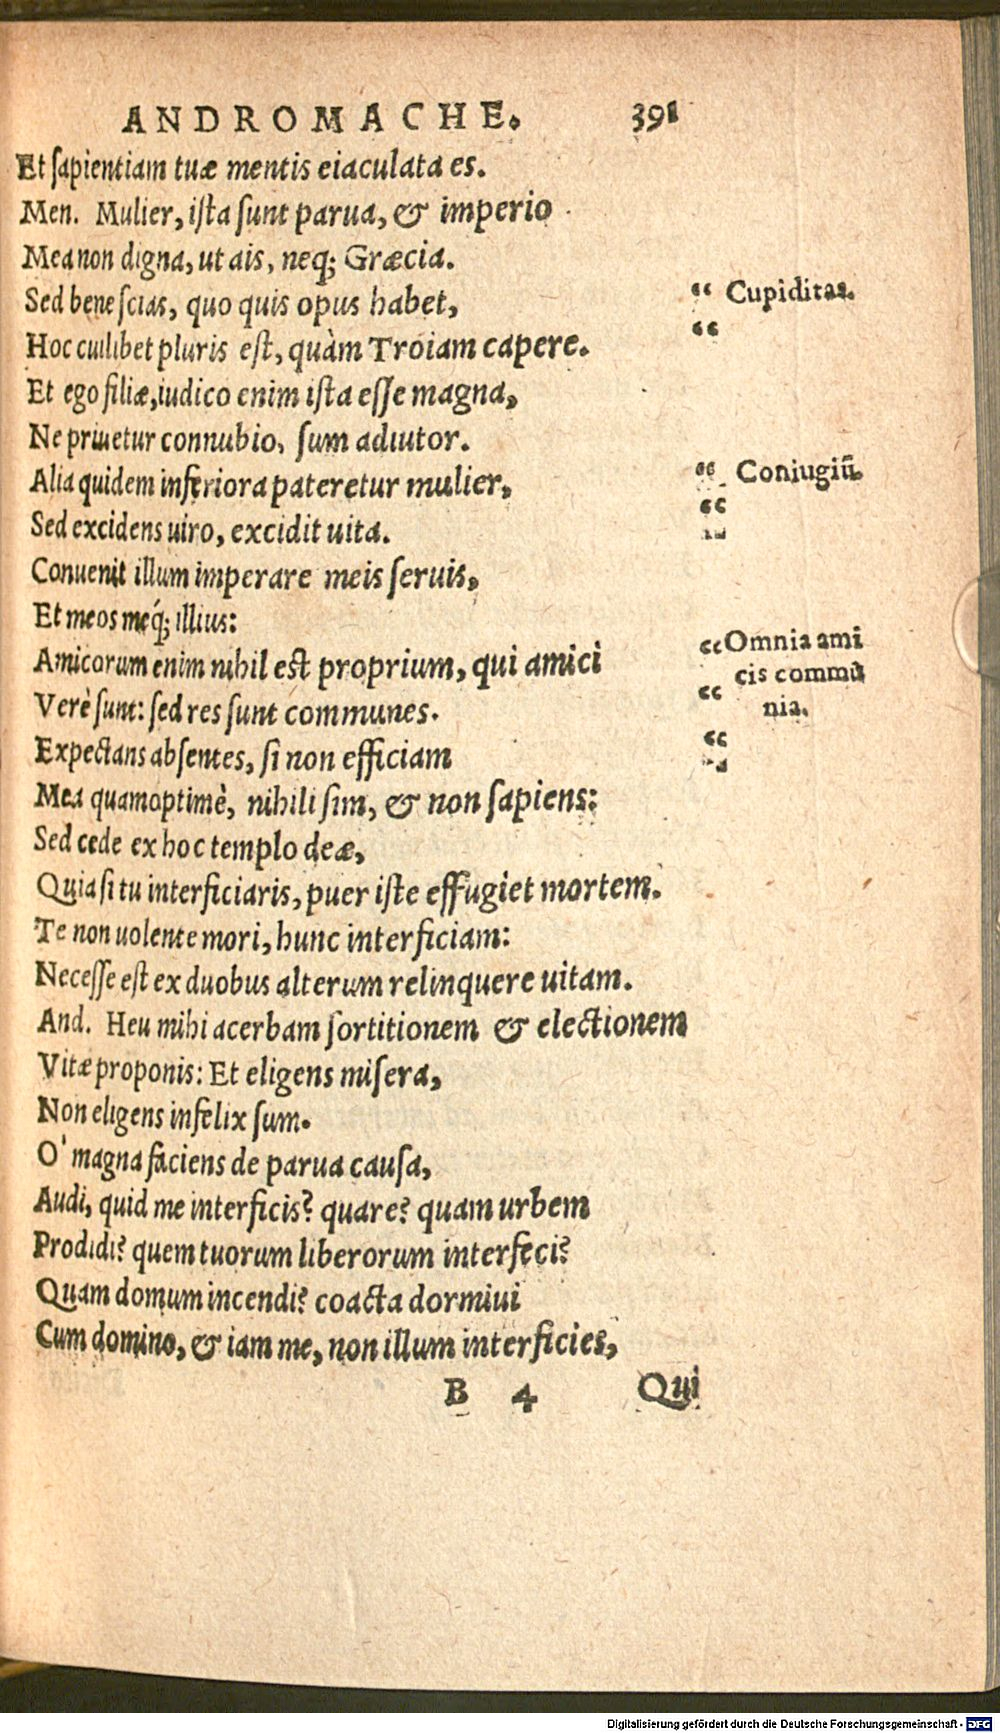 ANDROMACHE. 391
Et sapientiam tuæ mentis eiaculata es.
Men. Mulier, ista sunt parua, & imperio
Mea non digna, ut ais, neq; Græcia.
Sed bene scias, quo quis opus habet,
“ Cupiditas.
Hoc cuilibet pluris est, quàm Troiam capere.
“
Et ego filiæ, iudico enim ista esse magna,
Ne priuetur connubio, sum adiutor.
Alia quidem inferiora pateretur mulier,
“ Coniugiū.
Sed excidens uiro, excidit uita.
“
Conuenit illum imperare meis seruis,
Et meos meq́; illius:
Amicorum enim nihil est proprium, qui amici
“ Omnia ami
cis commu
nia.
Verè sunt: sed res sunt communes.
“
Expectans absentes, si non efficiam
“
Mea quamoptimè, nihili sim, & non sapiens:
Sed cede ex hoc templo deæ,
Quia si tu interficiaris, puer iste effugiet mortem.
Te non uolente mori, hunc interficiam:
Necesse est ex duobus alterum relinquere uitam.
And. Heu mihi acerbam sortitionem & electionem
Vitæ proponis: Et eligens misera,
Non eligens infelix sum.
O' magna faciens de parua causa,
Audi, quid me interficis? quare? quam urbem
Prodidi? quem tuorum liberorum interfeci?
Quam domum incendi? coacta dormiui
Cum domino, & iam me, non illum interficies,
B 4 Qui
Digitalisierung gefördert durch die Deutsche Forschungsgemeinschaft - DFG